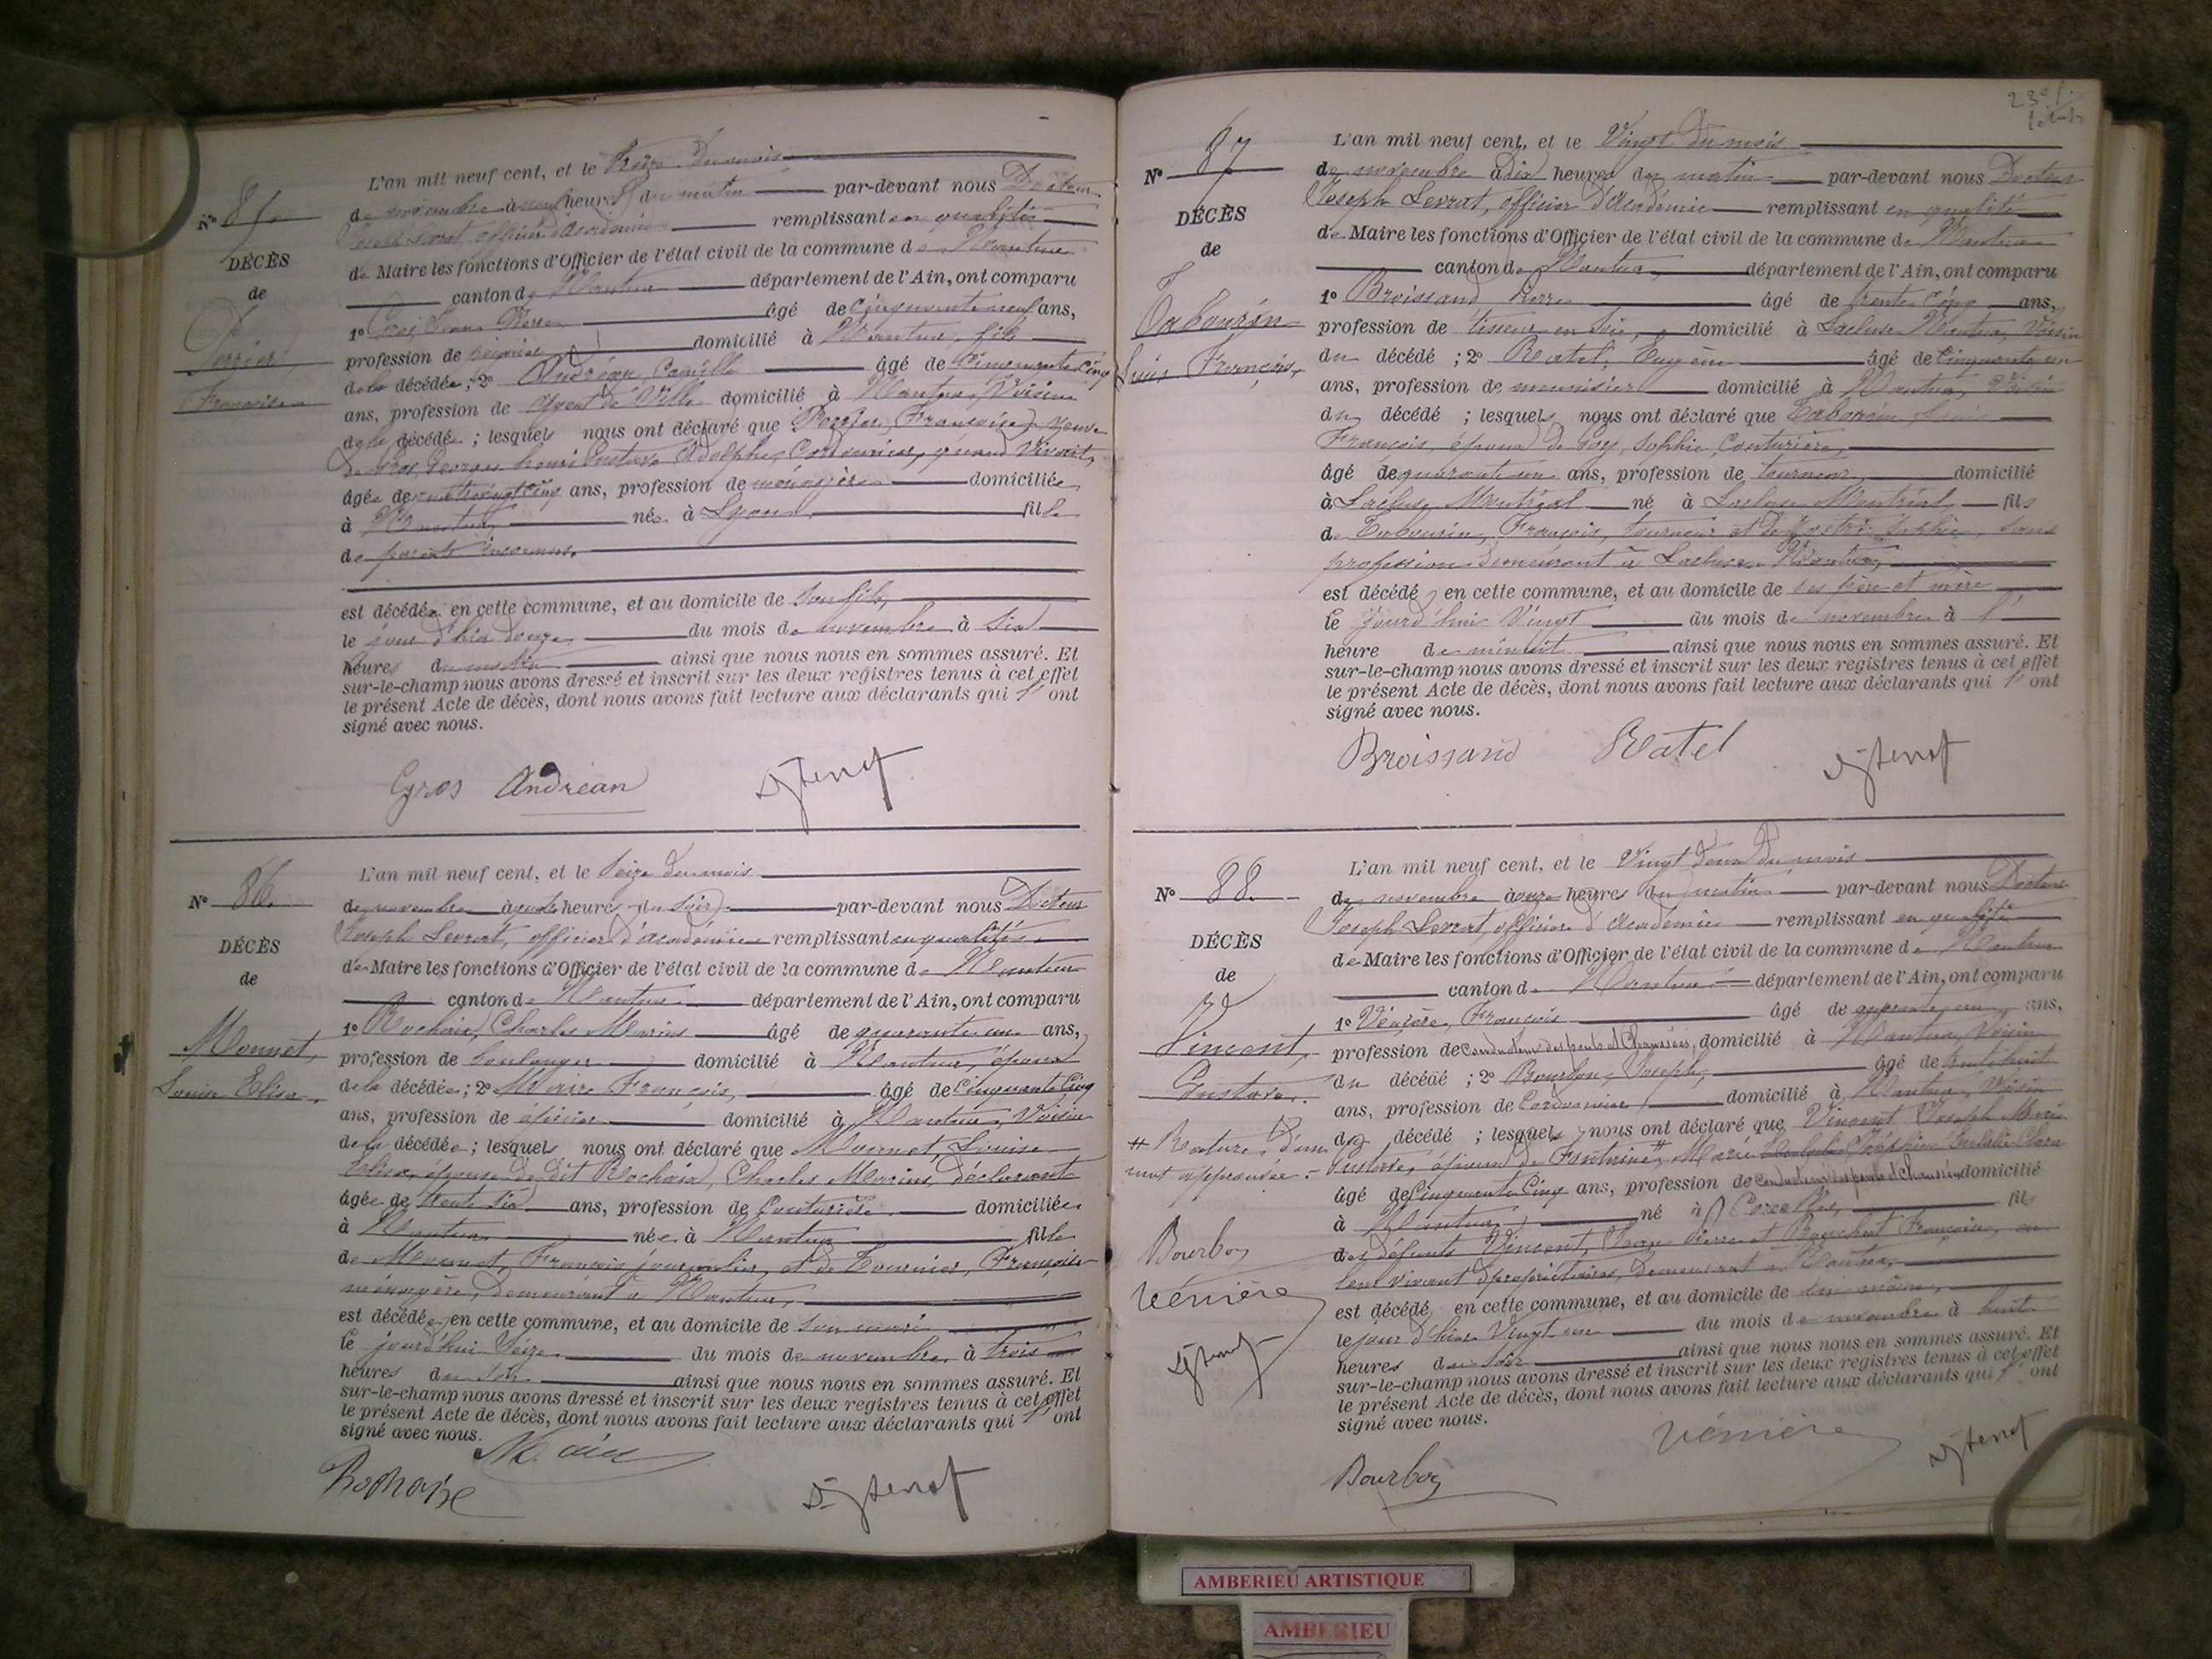 N° 85
DÉCÈS
de
Perrier
Françoise
L'an mil neuf cent, et le treize du mois
de novembre à neuf heures du matin par-devant nous Docteur
Joseph Levrat, officier d'académie remplissant en qualité
de Maire les fonctions d'Officier de l'état civil de la commune de Nantua
canton de Nantua département de l'Ain, ont comparu
1° Pierre âgé de cinquante neuf ans,
profession de domicilié à Nantua, fils
de la décédée ; 2° Andréan, Camille âgé de cinquante cinq
ans, profession de agent de Ville domicilié à Nantua, Voisin
de la décédée ; lesquels nous ont déclaré que Perrier, Françoise, veuve
de Gros, henri Gustave Adolphe, Cordonnier, quand vivait,
âgée de quatrevingt cinq ans, profession de ménagère domiciliée
à Nantua née à Lyon fille
de parents inconnus.
est décédée en cette commune, et au domicile de son fils,
le jour d'hier douze du mois de novembre à six
heures du matin ainsi que nous nous en sommes assuré. Et
sur-le-champ nous avons dressé et inscrit sur les deux registres tenus à cet effet
le présent Acte de décès, dont nous avons fait lecture aux déclarants qui l'ont
signé avec nous.
Gros Andréan
N° 86.
DÉCÈS
de
Monnet,
Louise Elisa.
L'an mil neuf cent, et le seize du mois
de novembre à quatre heures du soir par-devant nous Docteur
Joseph Levrat, officier d'académie remplissant en qualité
de Maire les fonctions d'Officier de l'état civil de la commune de Nantua
canton de Nantua département de l'Ain, ont comparu
1° Rochaix, Charles Marius âgé de quarante un ans,
profession de boulanger domicilié à Nantua, époux
de la décédée ; 2° Maire François, âgé de cinquante cinq
ans, profession de épicier domicilié à Nantua, Voisin
de la décédée ; lesquels nous ont déclaré que Monnet, Louise
Elisa, épouse du dit Rochaix, Charles Marius, déclarant
âgée de trente six ans, profession de Couturière domiciliée
à Nantua née à Nantua fille
de Monnet, François, journalier, et de Tournier, Françoise
ménagère, demeurant à Nantua,
est décédée en cette commune, et au domicile de son mari
le jourd'hui seize du mois de novembre à trois
heures du soir ainsi que nous nous en sommes assuré. Et
sur-le-champ nous avons dressé et inscrit sur les deux registres tenus à cet effet
le présent Acte de décès, dont nous avons fait lecture aux déclarants qui l'ont
signé avec nous.
Rochaix
N° 87
DÉCÈS
de
Tabourin
Louis François,
L'an mil neuf cent, et le Vingt du mois
de novembre à dix heures du matin par-devant nous Docteur
Joseph Levrat, officier d'Académie remplissant en qualité
de Maire les fonctions d'Officier de l'état civil de la commune de Nantua
canton de Nantua, département de l'Ain, ont comparu
1° Broissand Pierre âgé de trente cinq ans,
profession de tisseur en soie, domicilié à Lacluse Nantua, Voisin
du décédé ; 2° Ratel, Eugène âgé de cinquante un
ans, profession de menuisier domicilié à Nantua, Voisin
du décédé ; lesquels nous ont déclaré que Tabourin Louis
François, époux de Roy, Sophie, Couturière,
âgé de quarante un ans, profession de tourneur domicilié
à Lacluse Montréal né à Lacluse Montréal, fils
de Tabourin, François, tourneur et de Sophie, sans
profession demeurant à Lacluse Nantua,
est décédé en cette commune, et au domicile de ses père et mère
le jourd'hui Vingt du mois de novembre à l'
heure de minuit ainsi que nous nous en sommes assuré. Et
sur-le-champ nous avons dressé et inscrit sur les deux registres tenus à cet effet
le présent Acte de décès, dont nous avons fait lecture aux déclarants qui l'ont
signé avec nous.
Broissand Ratel
N° 88.
DÉCÈS
de
Vincent,
Gustave.
# Rature d'un
mot approuvée.
Bourbon
Vénière
L'an mil neuf cent, et le Vingt deux du mois
de novembre à onze heures du matin par-devant nous Docteur
Joseph Levrat, officier d'Académie remplissant en qualité
de Maire les fonctions d'Officier de l'état civil de la commune de Nantua
canton de Nantua département de l'Ain, ont comparu
1° Vénière, François âgé de quarante un ans,
profession de Conducteur des ponts et Chaussées, domicilié à Nantua, Voisin
du décédé ; 2° Bourbon, Joseph, âgé de trente huit
ans, profession de Cordonnier domicilié à Nantua, Voisin
du décédé ; lesquels nous ont déclaré que Vincent Joseph Marie
Gustave, époux de Fontaine #, Marie Joséphine Eulalie Clara
âgé de Cinquante Cinq ans, profession de Conducteur des ponts et Chaussées domicilié
à Nantua né à Corcelles, fils
des défunts Vincent, Pierre et Françoise, en
leur vivant propriétaires, demeurant à Nantua,
est décédé en cette commune, et au domicile de lui même,
le jour d'hier Vingt un du mois de novembre à huit
heures du soir ainsi que nous nous en sommes assuré. Et
sur-le-champ nous avons dressé et inscrit sur les deux registres tenus à cet effet
le présent Acte de décès, dont nous avons fait lecture aux déclarants qui l'ont
signé avec nous.
Bourbon Vénière
AMBERIEU ARTISTIQUE
AMBERIEU